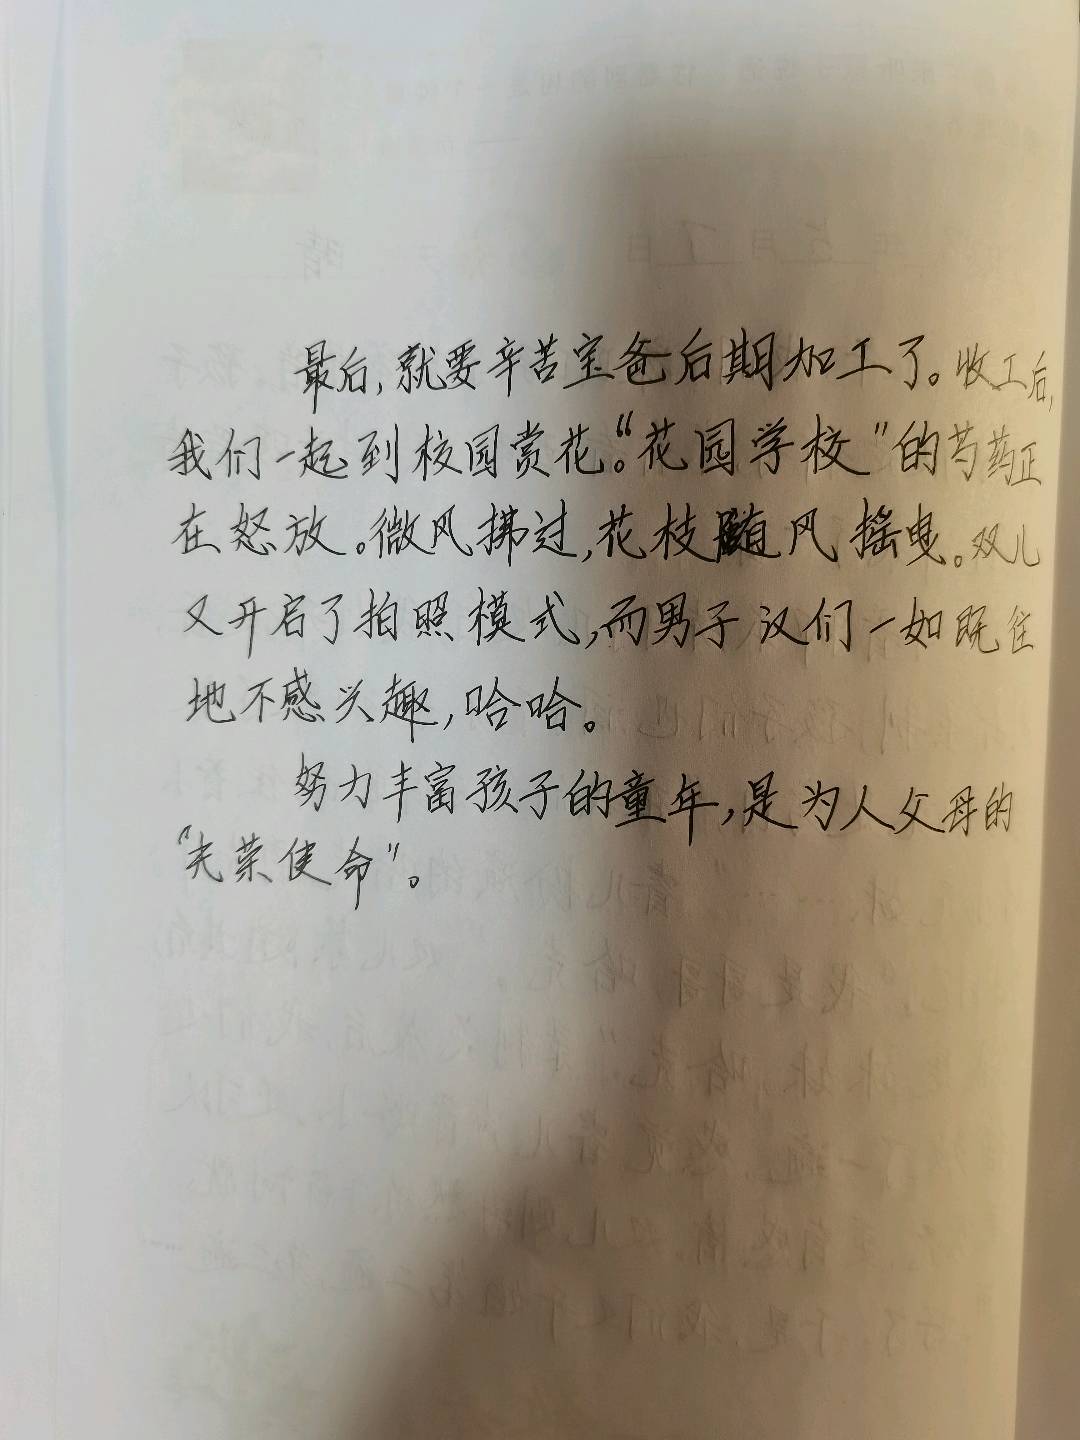 最后,就要辛苦宝爸后期加工了。收工后,
我们一起到校园赏花。“花园学校”的芍药正
在怒放。微风拂过,花枝随风摇曳。双儿
又开启了拍照模式,而男子汉们一如既往
地不感兴趣,哈哈。
努力丰富孩子的童年,是为人父母的
“光荣使命”。